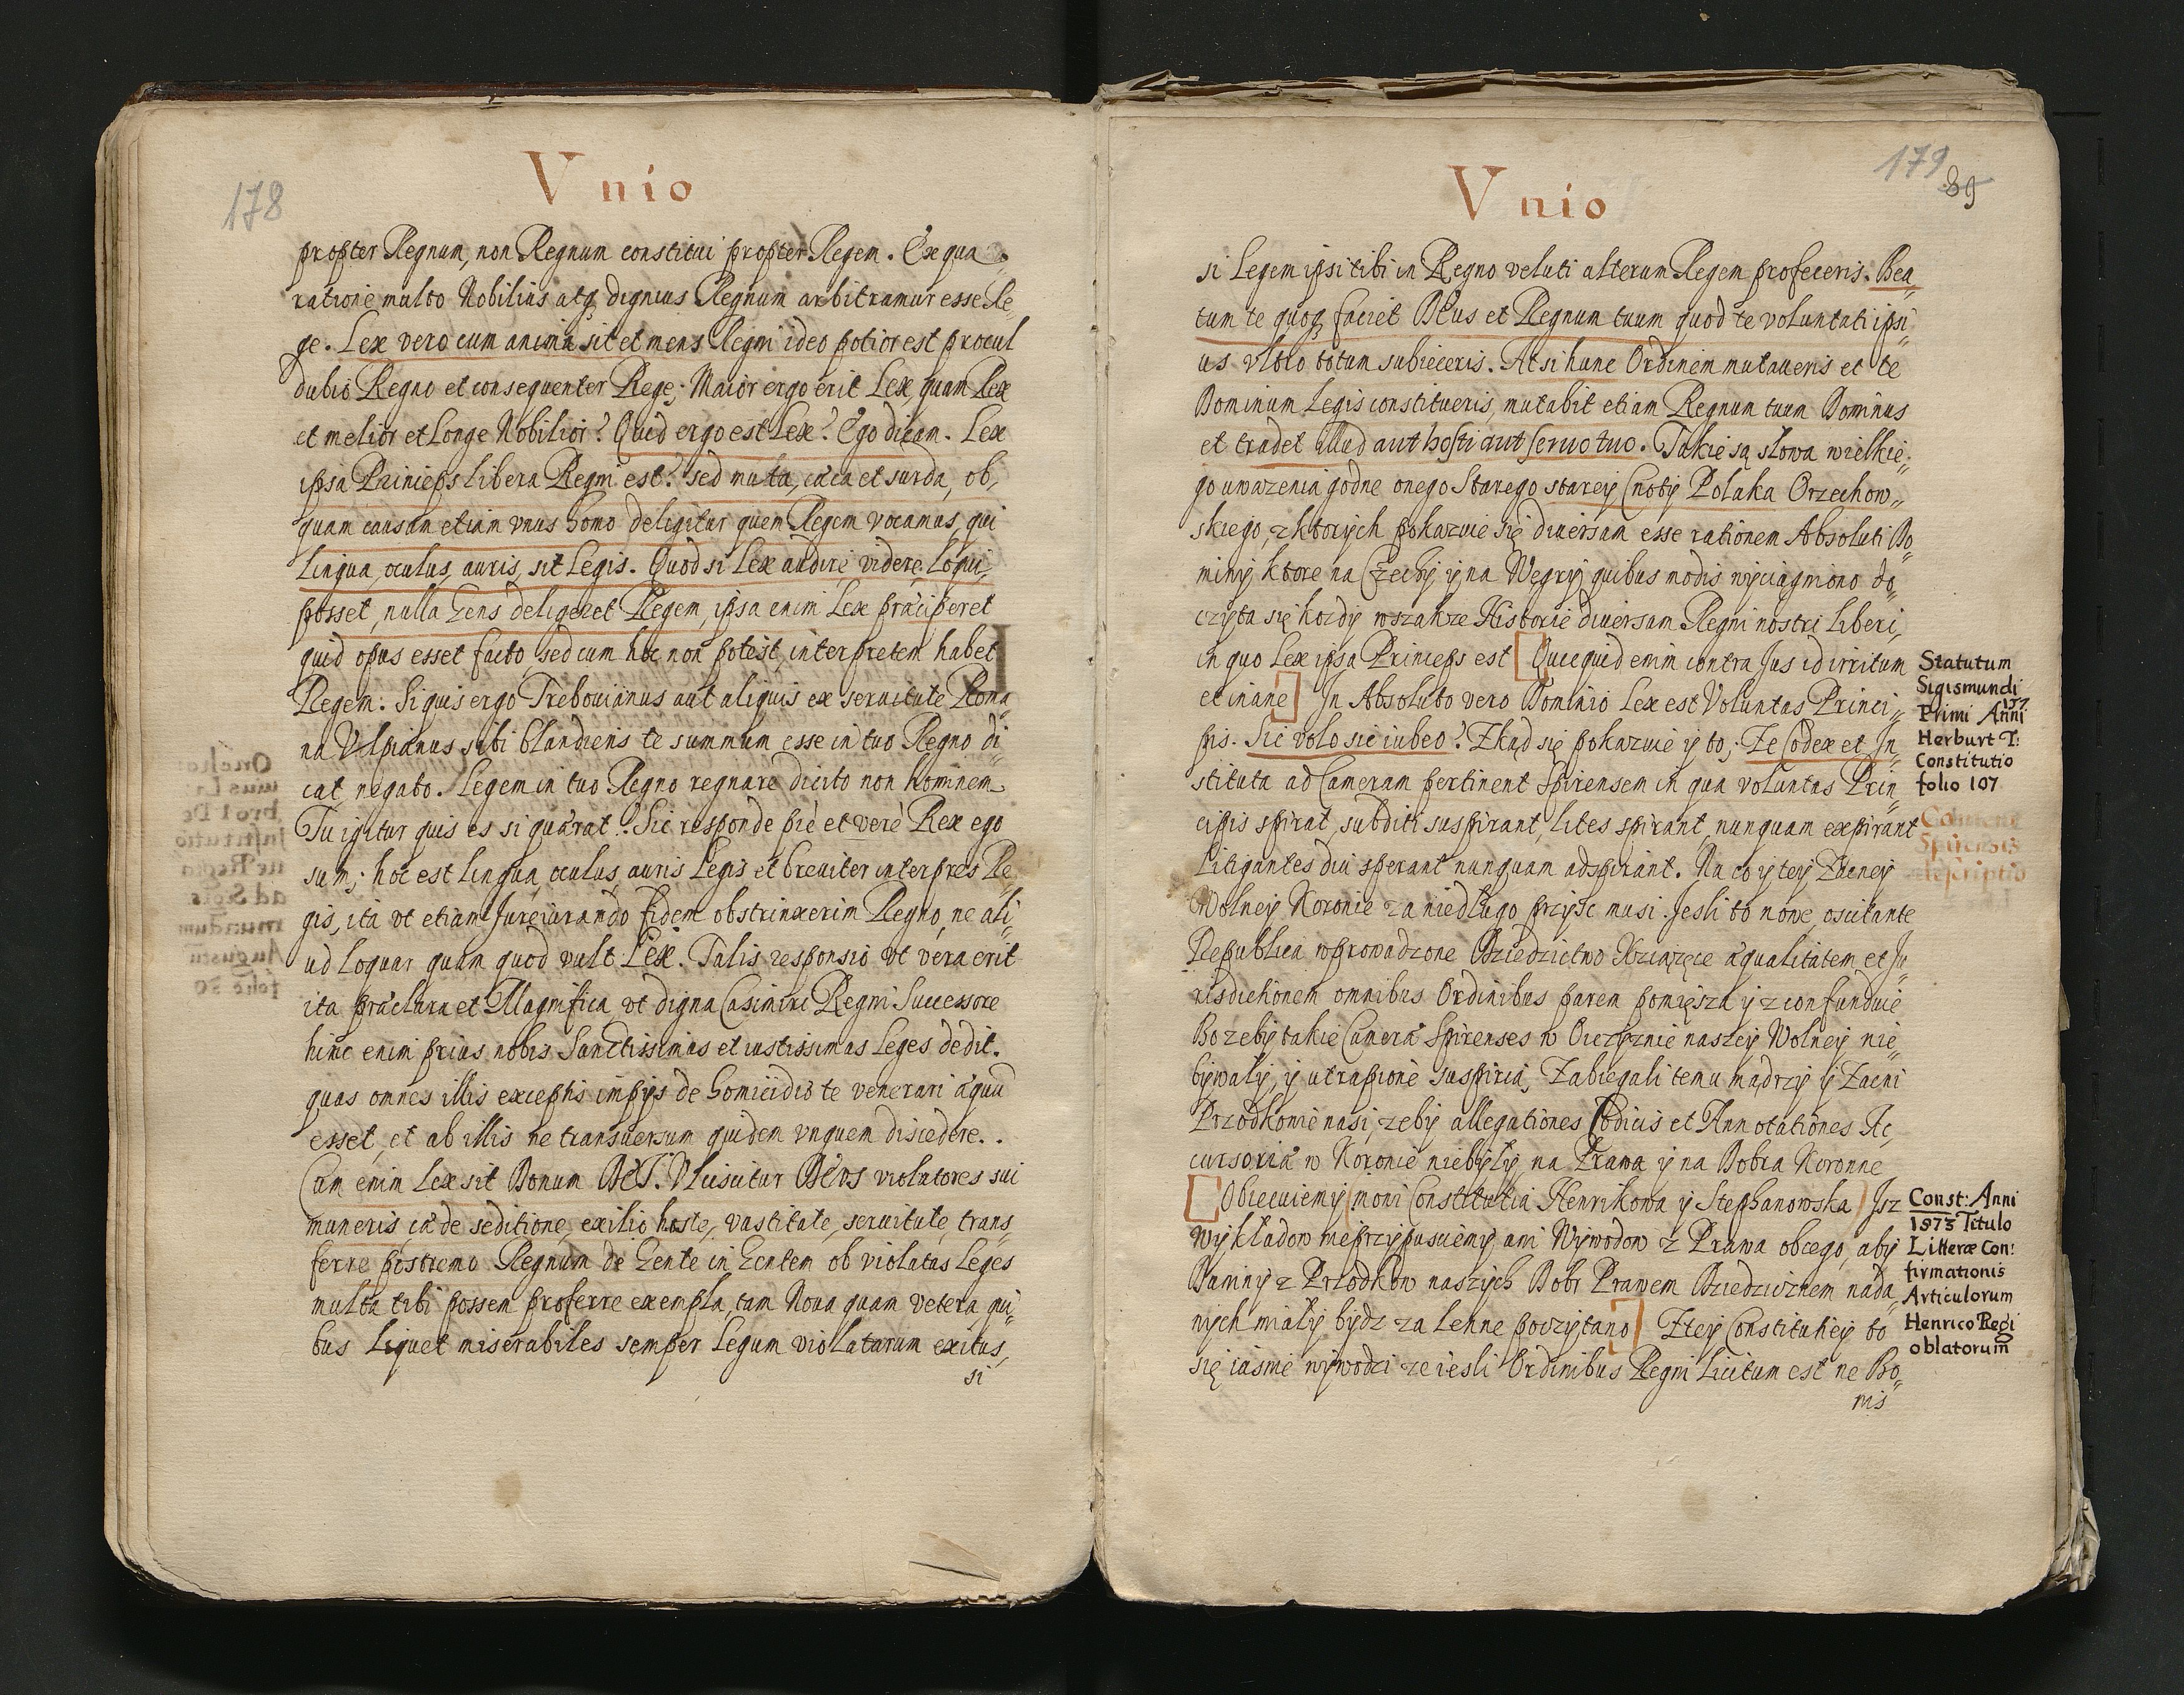 178
Vnio
propter Regnum, non Regnum constitui propter Regem. Ex qua
ratione multo Nobilius atq dignius Regnum arbitramur esse Re„
ge. Lex vero cum anima sit et mens Regni ideo potior est procul
dubio Regno et consequenter Rege; Maior ergo erit Lex, quam Rex
et melior et Longe Nobilior? Quid ergo est Lex? Ego dicam. Lex
ipsa Princeps libera Regni est? sed muta, cæca et surda, ob,
quam causam etiam vnus homo deligitur quem Regem vocamus, qui
Lingua, oculus, auris, sit Legis. Quod si Lex audire, videre, loqui,
posset, nulla Gens deligeret Regem, ipsa enim Lex præciperet
quid opus esset facto, sed cum hoc non potest interpretem habet
Regem. Si quis ergo Trebonianus aut aliquis ex seruitute Roma„
na Vlpianus sibi blandiens te summum esse in tuo Regno di„
cat negato. Legem in tuo Regno regnare dicito non hominem
Tu igitur quis es si quærat? Sic responde piè et verè Rex ego
sum; hoc est lingua, oculus, auris Legis et breuiter interpres Le„
gis, ita vt etiam Jureiurando fidem obstrinxerim Regno, ne ali„
ud loquar quam quod vult Lex. Talis responsio vt vera erit
ita præclara et Magnifica, vt digna Casimiri Regni Successore
hinc enim prius nobis Sanctissimas et iustissimas Leges dedit.
quas omnes illis exceptis impijs de homicidio te venerari æquũ
esset, et ab illis ne transuersum quidem vnguem discedere..
Cum enim Lex sit Donum DEI. Vlciscitur DEVS violatores sui
muneris, cæde seditione, exilio hoste, vastitate, seruitute, trans„
ferre postremo Regnum de Gente in Gentem ob violatas Leges
multa tibi possem proferre exempla, tam Noua quam vetera, qui„
bus liquet miserabiles semper Legum violatarum exitus,
si
179
89
Vnio
si Legem ipsi tibi in Regno veluti alterum Regem profeceris. Bea„
tum te quoq faciet DEus et Regnum tuum quod te voluntati ipsi„
us vltro totum subieceris. At si hunc Ordinem mutaueris et te
Dominum Legis constitueris, mutabit etiam Regnum tuum Dominus
et tradet illud aut hosti aut seruo tuo. Takie są słowa wielkie„
go uwazenia godne onego Starego starey Cnoty Polaka Orzechow„
skiego, z ktorych pokazuie się diuersam esse rationem Absoluti Do„
minij ktore na Czechy y na Węgry quibus modis wyciągniono do„
czyta się kozdy wszakze Historie diuersam Regni nostri liberi,
in quo Lex ipsa Princeps est [Quicquid enim contra Jus id irritum
et inane] In Absoluto vero Dominio Lex est Voluntas Princi„
pis. Sic volo sic iubeo? Zkąd się pokazuie y to; Ze Codex et In„
stituta ad Cameram pertinent Spirensem in qua voluntas Prin„
cipis spirat, subditi suspirant, lites spirant, nunquam expirant
Litigantes diu sperant nunquam adspirant. Na co y tey Zacney
Wolney Koronie za niedługo przyść musi. Jesli to nowe, oscitante
Republica wprowadzone Dziedzictwo Xciązęce æqualitatem et Ju„
risdictionem omnibus Ordinibus parem pomięsza y z confunduie
Bo zeby takie Cameræ Spirenses w Oiczyznie naszey Wolney nie„
bywały, y utrapione suspiria, Zabiegali temu mądrzy y Zacni
Przodkowie nasi, zeby allegationes Codicis et Annotationes Ac„
cursoriæ w Koronie niebyły na Prawa y na Dobra Koronne
[Obiecuiemy (mowi Constitutia Henrikowa y Stephanowska) Jsz
wykładow nieprzypusciemy, ani Wywodow z Prawa obcego, aby
Daniny z Przodkow naszych Dobr Prawem Dziedzicznem nada„
nych miały bydz za Lenne poczytano] Z tey Constitutiey to
się iasnie wywodzi ze iesli Ordinibus Regni Licitum est ne Bo„
nis
Statutum
Sigismundi
Primi Anni
Herburt T:
Constitutio
folio 107
Const: Anni
1573 Titulo
Litteræ Con:
firmationis
Articulorum
Henrico Regi
oblatorum